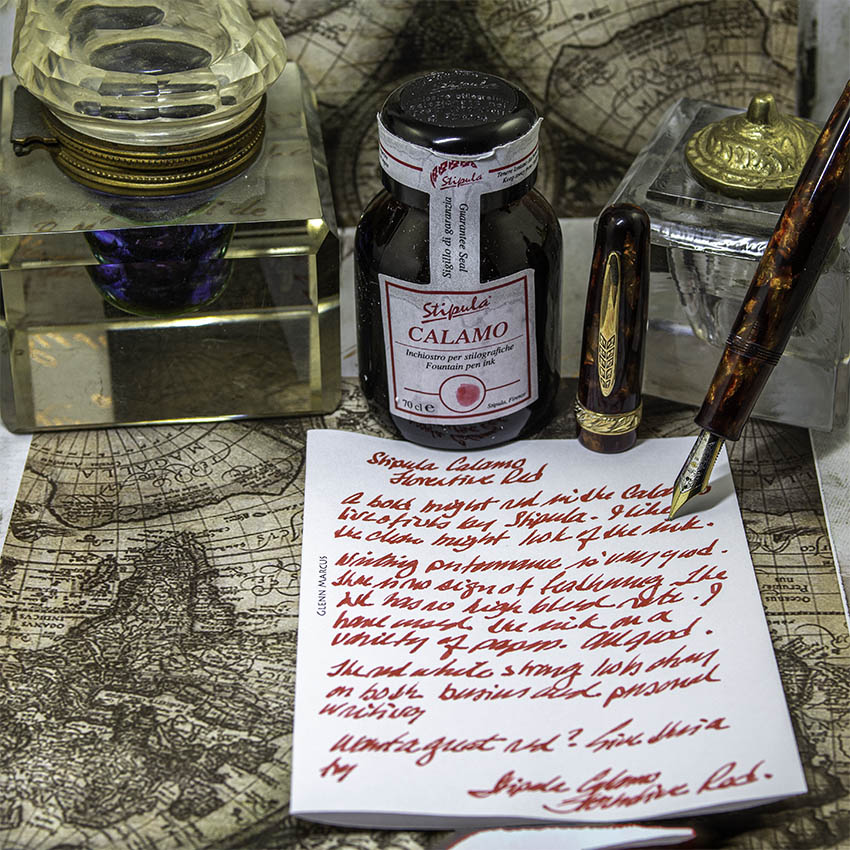 Stipula
Stipula
Guarantee Seal
Sigillo di garanzia
Stipula
CALAMO
Inchiostro per stilografiche
Fountain pen ink
70 cl e
Stipula, Firenze
GLENN MARCUS
Stipula Calamo
Florentine Red
A bold bright red in the Calamo
line of inks by Stipula. I like
the clean bright look of the ink.
Writing performance is very good.
There is no sign of feathering. The
ink has no high bleed rate. I
have used the ink on a
variety of papers. All good.
The red while strong looks okay
on both business and personal
writing
Want a great red? Give this a
try
Stipula Calamo
Florentine Red.